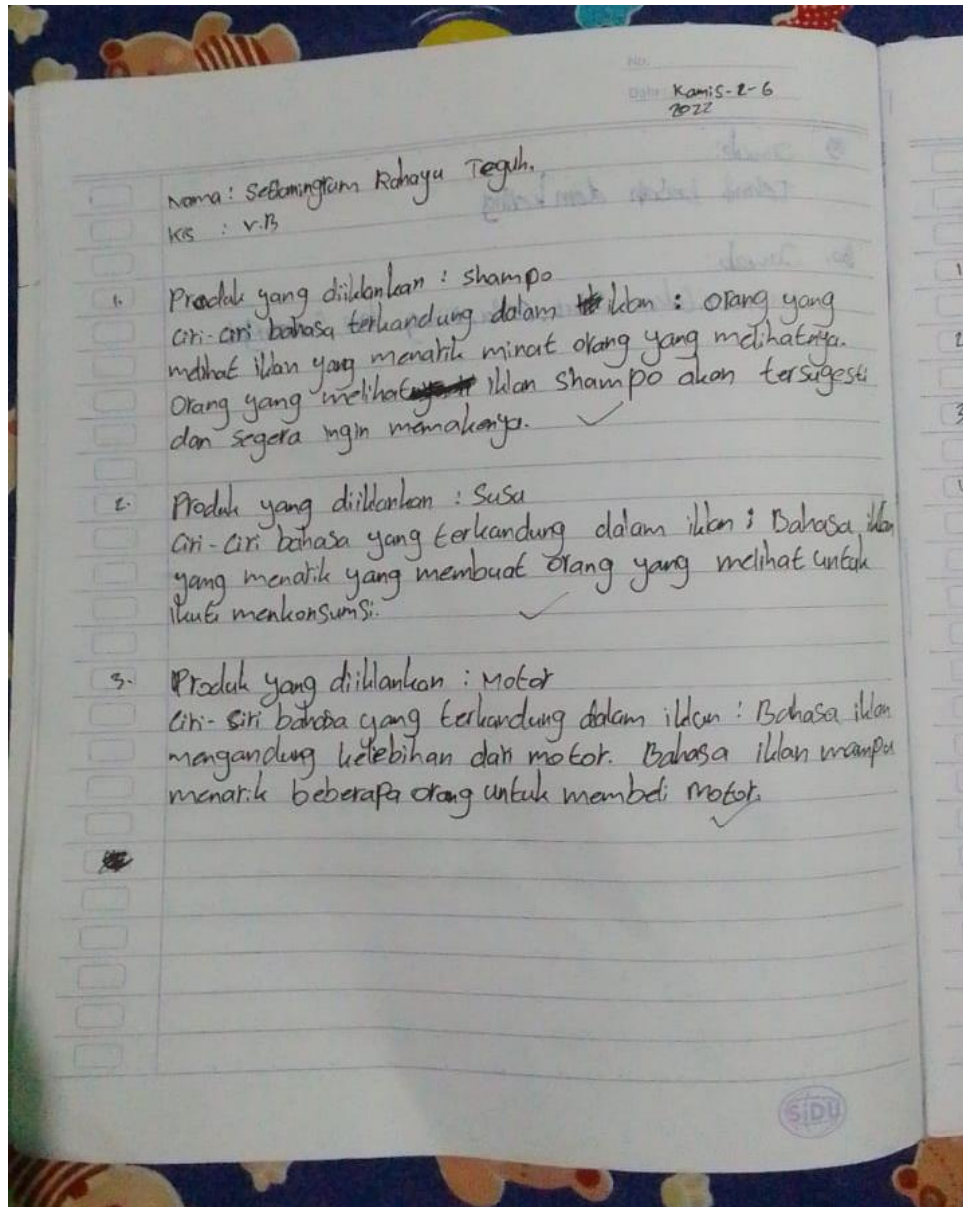 No.
Date: Kamis-2-6
2022
Nama: Setianingrum Rahayu Teguh.
Kls : V.B
1. Produk yang diiklankan : shampo
ciri-ciri bahasa terkandung dalam iklan : orang yang
melihat iklan yang menarik minat orang yang melihatnya.
Orang yang melihat iklan shampo akan tersugesti
dan segera ingin memakenya.
2. Produk yang diiklankan : Susa
Ciri-Ciri bahasa yang terkandung dalam iklan : Bahasa iklan
yang menarik yang membuat orang yang melihat untuk
ikuti menkonsumsi.
3. Produk yang diiklankan : Motor
Ciri-Siri bahasa yang terkandung dalam iklan : Bahasa iklan
mengandung kelebihan dari motor. Bahasa iklan mampu
menarik beberapa orang untuk membeli motor.
SiDU